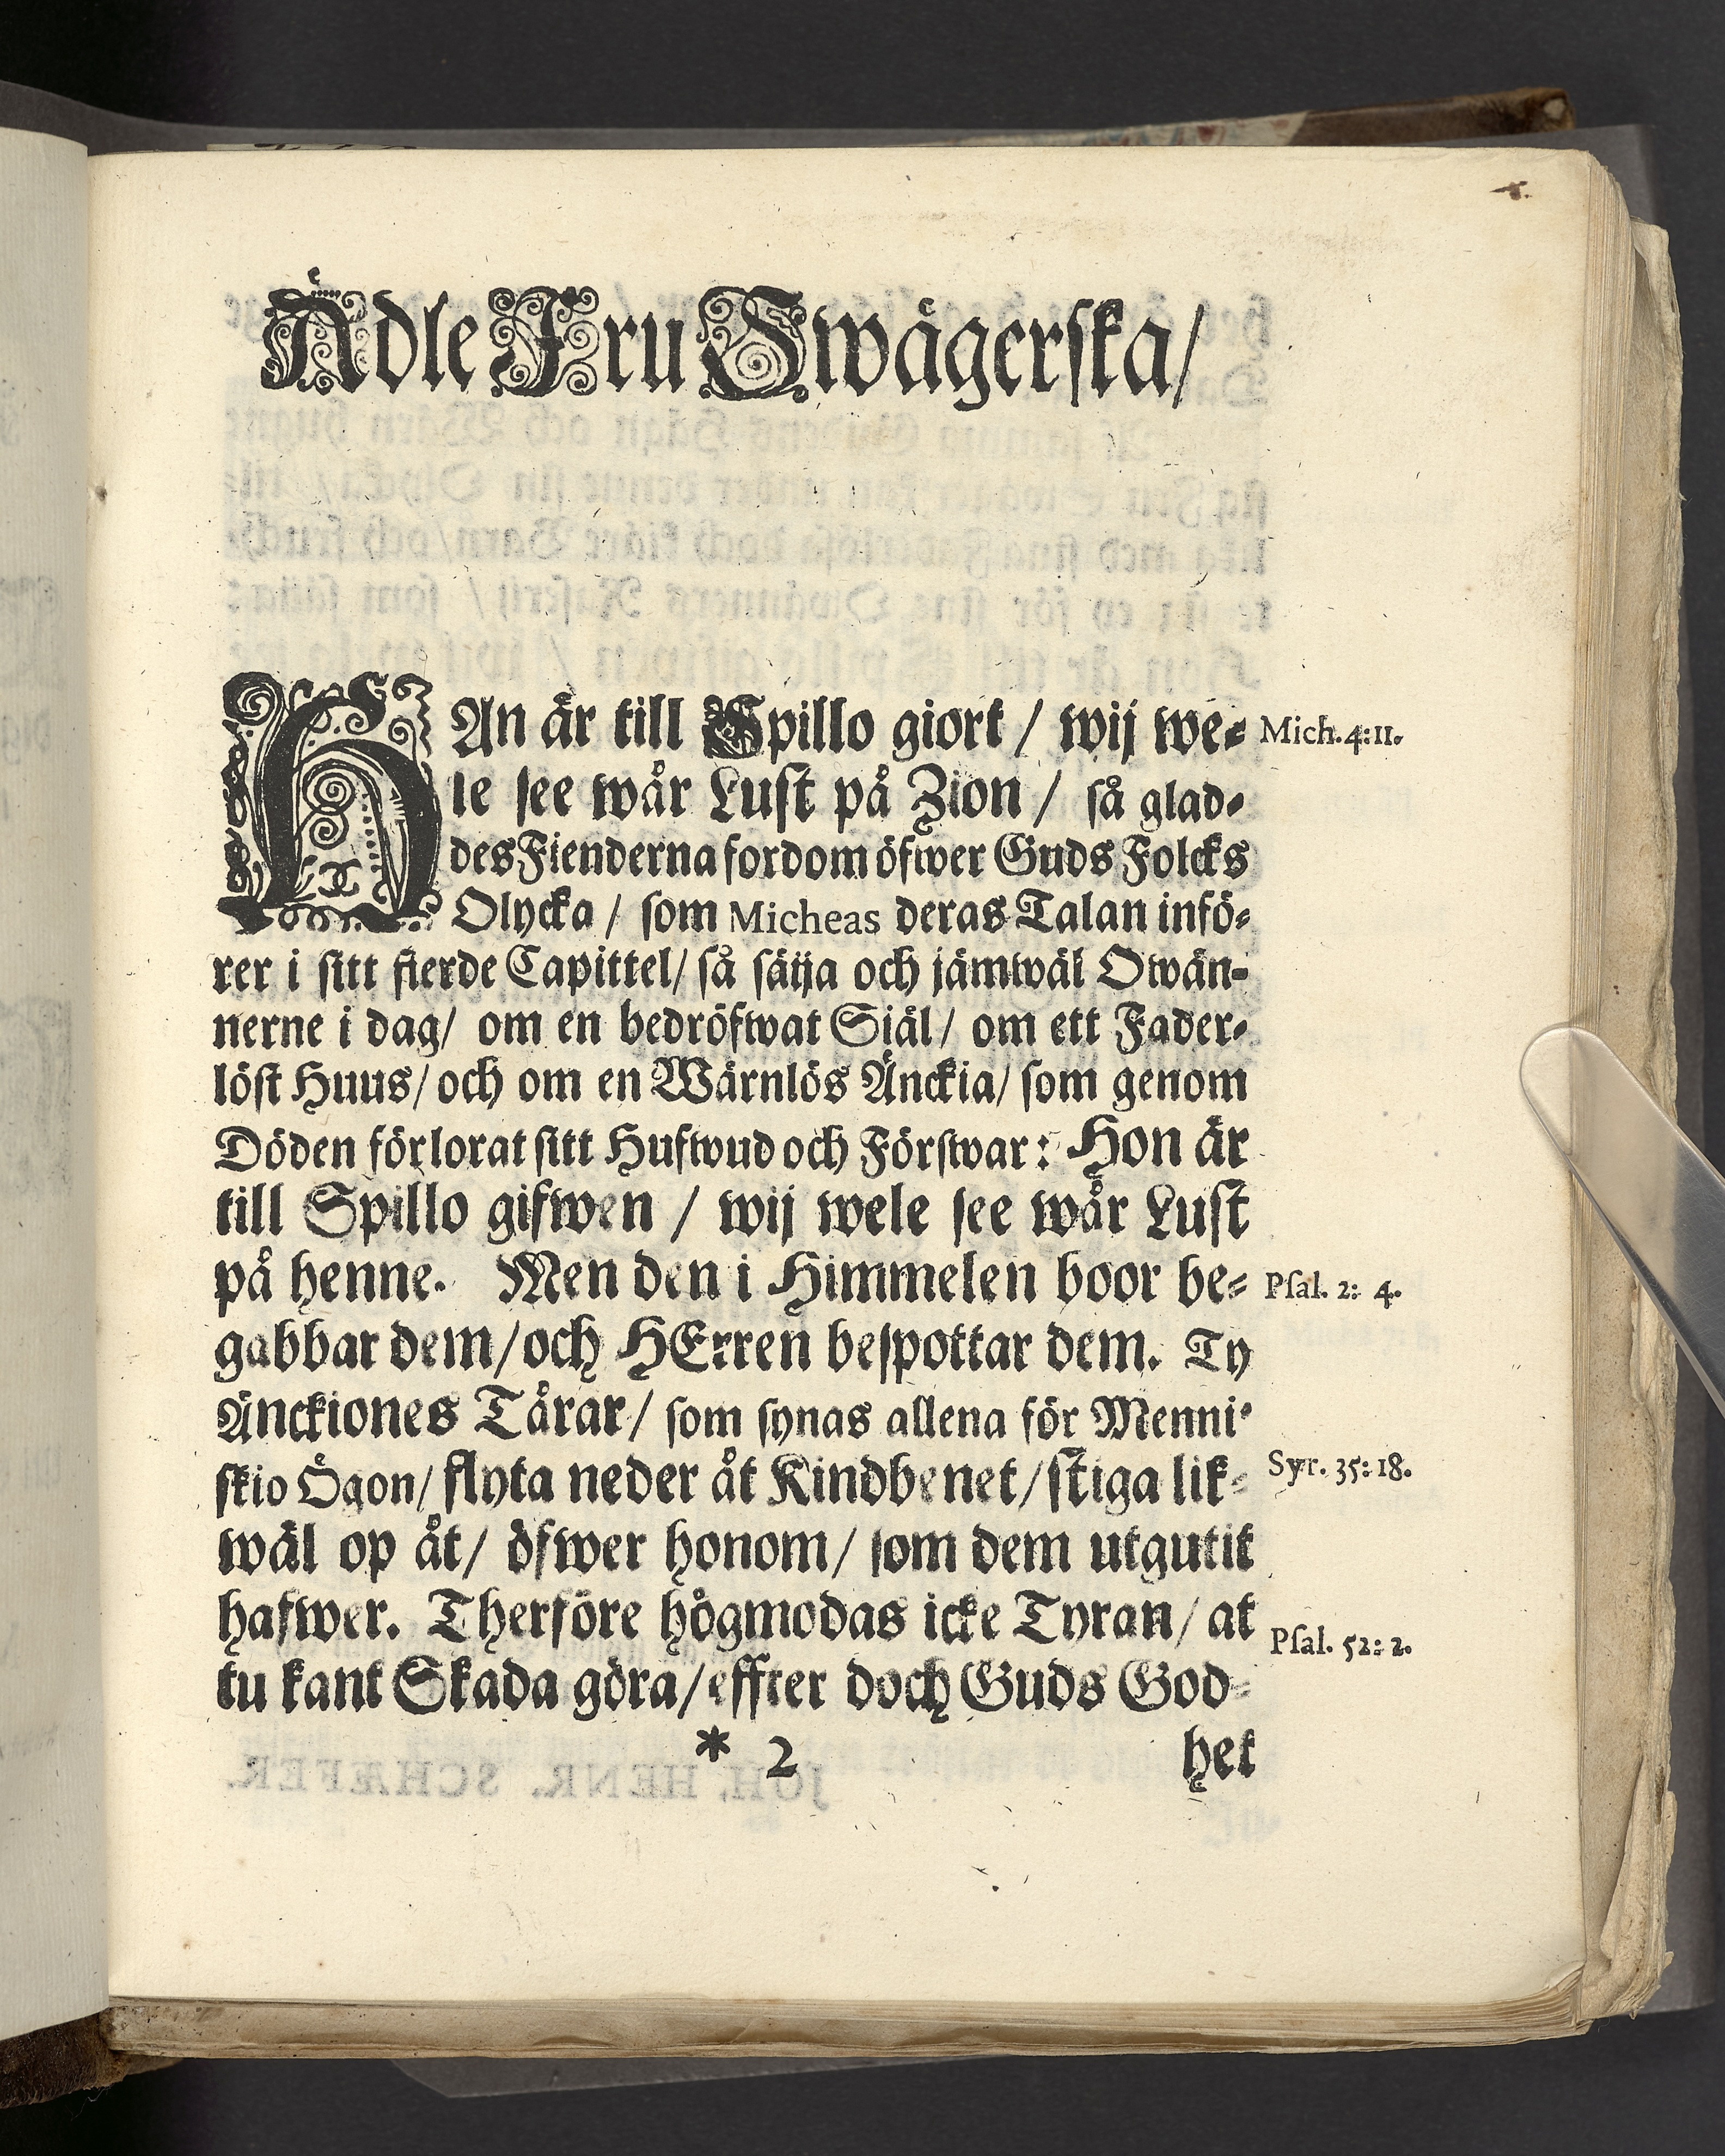 Ädle Fru Swägerska/
HAn är till Spillo giort / wij we- Mich. 4:11.
le see wår Lust på Zion / så glad-
des Fienderna fordom öfwer Guds Folcks
Olycka / som Micheas deras Talan infö-
rer i sitt fierde Capittel/ så säija och jämwäl Owän-
nerne i dag/ om en bedröfwat Siäl/ om ett Fader-
löst Huus/ och om en Wärnlös Änckia/ som genom
Döden förlorat sitt Hufwud och Förswar: Hon är
till Spillo gifwen / wij wele see wår Lust
på henne. Men den i Himmelen boor be- Psal. 2: 4.
gabbar dem/ och HErren bespottar dem. Ty
Änckiones Tårar/ som synas allena för Menni-
skio Ögon/ flyta neder åt Kindbenet/ stiga lik- Syr. 35:18.
wäl op åt/ öfwer honom/ som dem utgutit
hafwer. Therföre högmodas icke Tyran/ at Psal. 52: 2.
tu kant Skada göra/ effter doch Guds God-
* 2 het